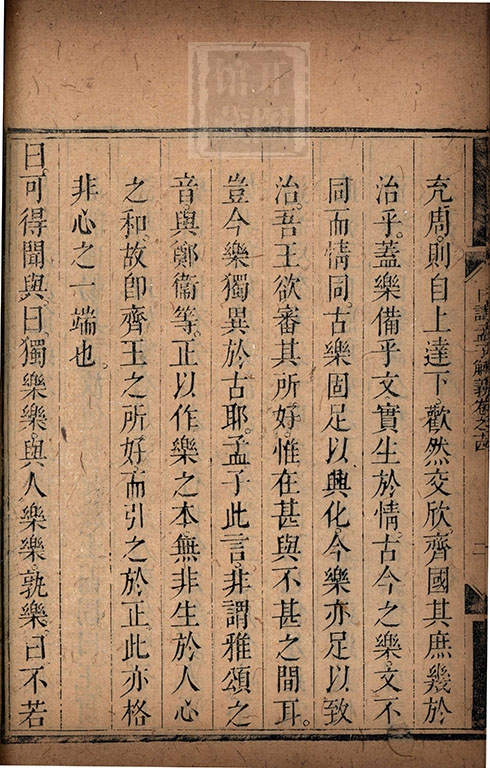 充周則自上達下歡然交欣齊國其庶幾於
治乎蓋樂備乎文實生於情古今之樂文不
同而情同古樂固足以興化今樂亦足以致
治吾王欲審其所好惟在甚與不甚之間耳
豈今樂獨異於古耶孟子此言非謂雅頌之
音與鄭衞等正以作樂之本無非生於人心
之和故卽齊王之所好而引之於正此亦格
非心之一端也
曰可得聞與曰獨樂樂與人樂樂孰樂曰不若
日講孟子解義卷之十四
二